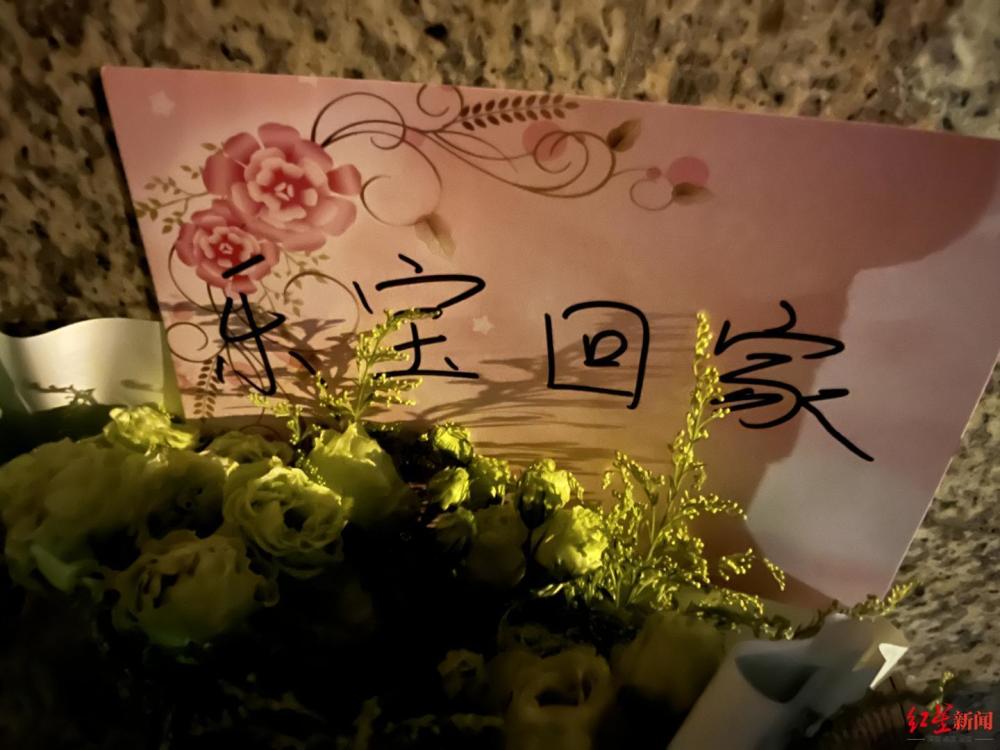 乐宝回家
红星新闻